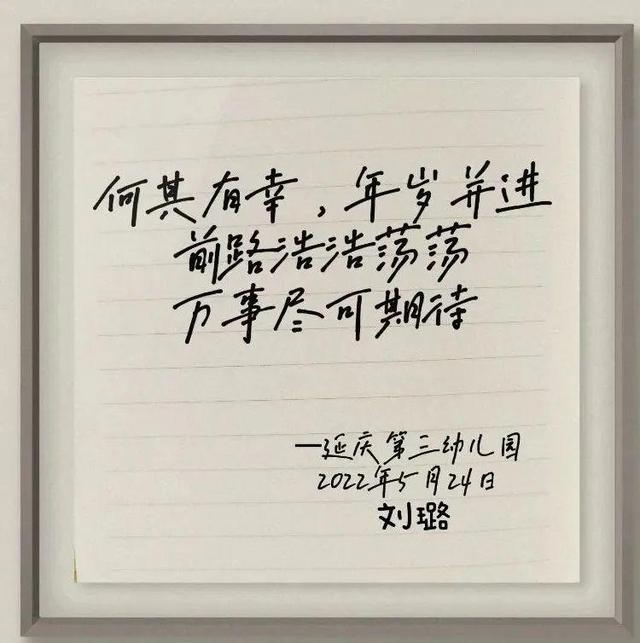 何其有幸，年岁并进
前路浩浩荡荡
万事尽可期待
一延庆第三幼儿园
2022年5月24日
刘璐